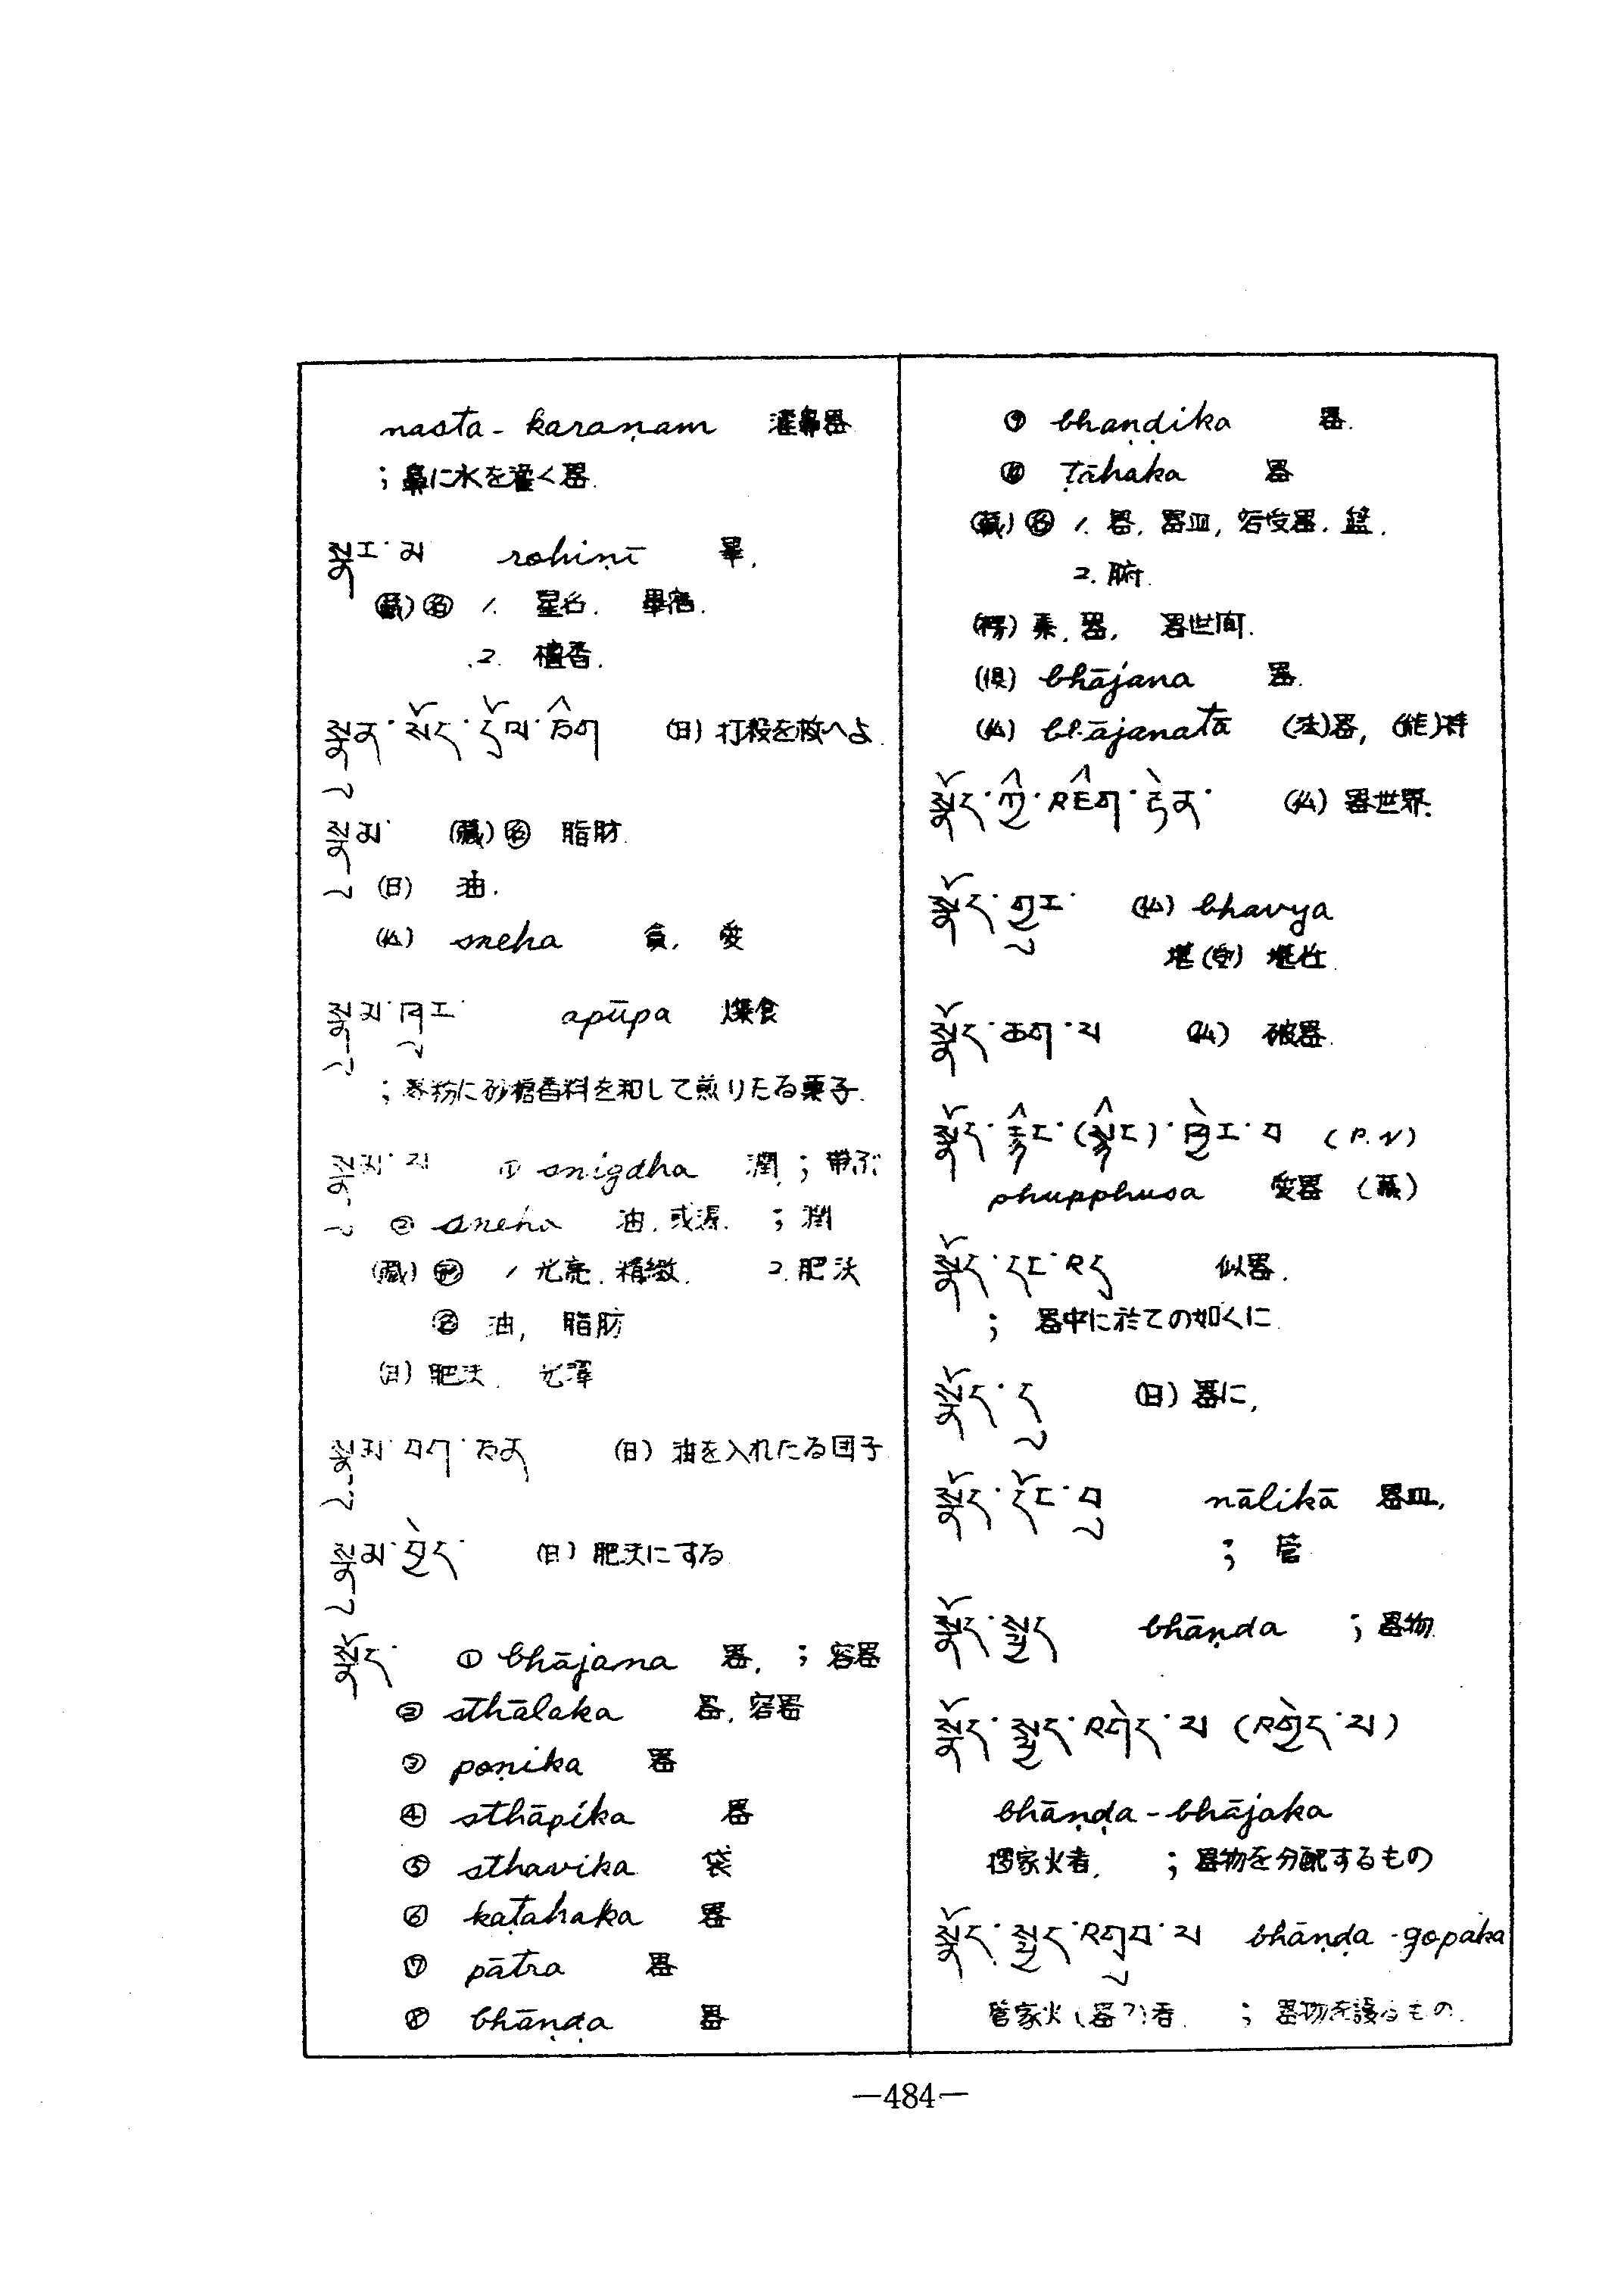 nasta-karaṇam 灌鼻器
；鼻に水を灌く器.
སྣར་མ rohiṇī 畢.
(蔵)㊔ 1. 星名. 畢宿.
2. 檀香.
སྣུན་སོད་དོལ་ཅིག (日) 打殺を救へよ.
སྣུམ (蔵) 脂肪.
(日) 油.
(仏) sneha 貪, 愛
སྣུམ་ཁུར་ apūpa 燥食
粉に砂糖香料を和して煎りたる菓子.
སྣུམ་པ ① snigdha 潤 ；帯ぶ
② sneha 油. 或湿. ；潤
(蔵) 1 光亮. 精緻. 2. 肥沃
油, 脂肪
(日) 肥沃. 光澤
སྣུམ་བག་ཅན (日) 油を入れたる団子
སྣུམ་བྱེད་ (日) 肥沃にする
སྣོད་ ① bhājana 器. ；容器
② sthālaka 器. 容器
③ poṇika 器
④ sthāpika 器
⑤ sthavika 袋
⑥ kaṭahaka 器
⑦ pātra 器
⑧ bhāṇḍa 器
⑨ bhaṇḍika 器.
⑩ ṭāhaka 器
(蔵) 1. 器. 器皿, 容受器. 籃.
2. 腑.
(楞) 器, 器世間.
(倶) bhājana 器.
(仏) bhājanatā (法)器, (能)持
སྣོད་ཀྱི་འཇིག་རྟེན་ (仏) 器世界.
སྣོད་གྱུར་ (仏) bhavya
堪(受) 堪任.
སྣོད་ཆག་པ (仏) 破器.
སྣོད་ (P.N)
phupphusa 愛器 (蔵)
སྣོད་དང་འད 似器.
； 器中に於ての如くに.
སྣོད་དུ (日) 器に,
སྣོད་དོང་བུ nālikā 器皿,
； 管
སྣོད་སྤྱད bhāṇda ；器物.
སྣོད་སྤྱད་འགེད་པ (འགྱེད་པ)
bhāṇḍa-bhājaka
家火者. ；器物を分配するもの
སྣོད་སྤྱད་འགུབ་པ bhāṇḍa-gopaka
管家火(器?)者. ； 器物を護るもの.
—484—